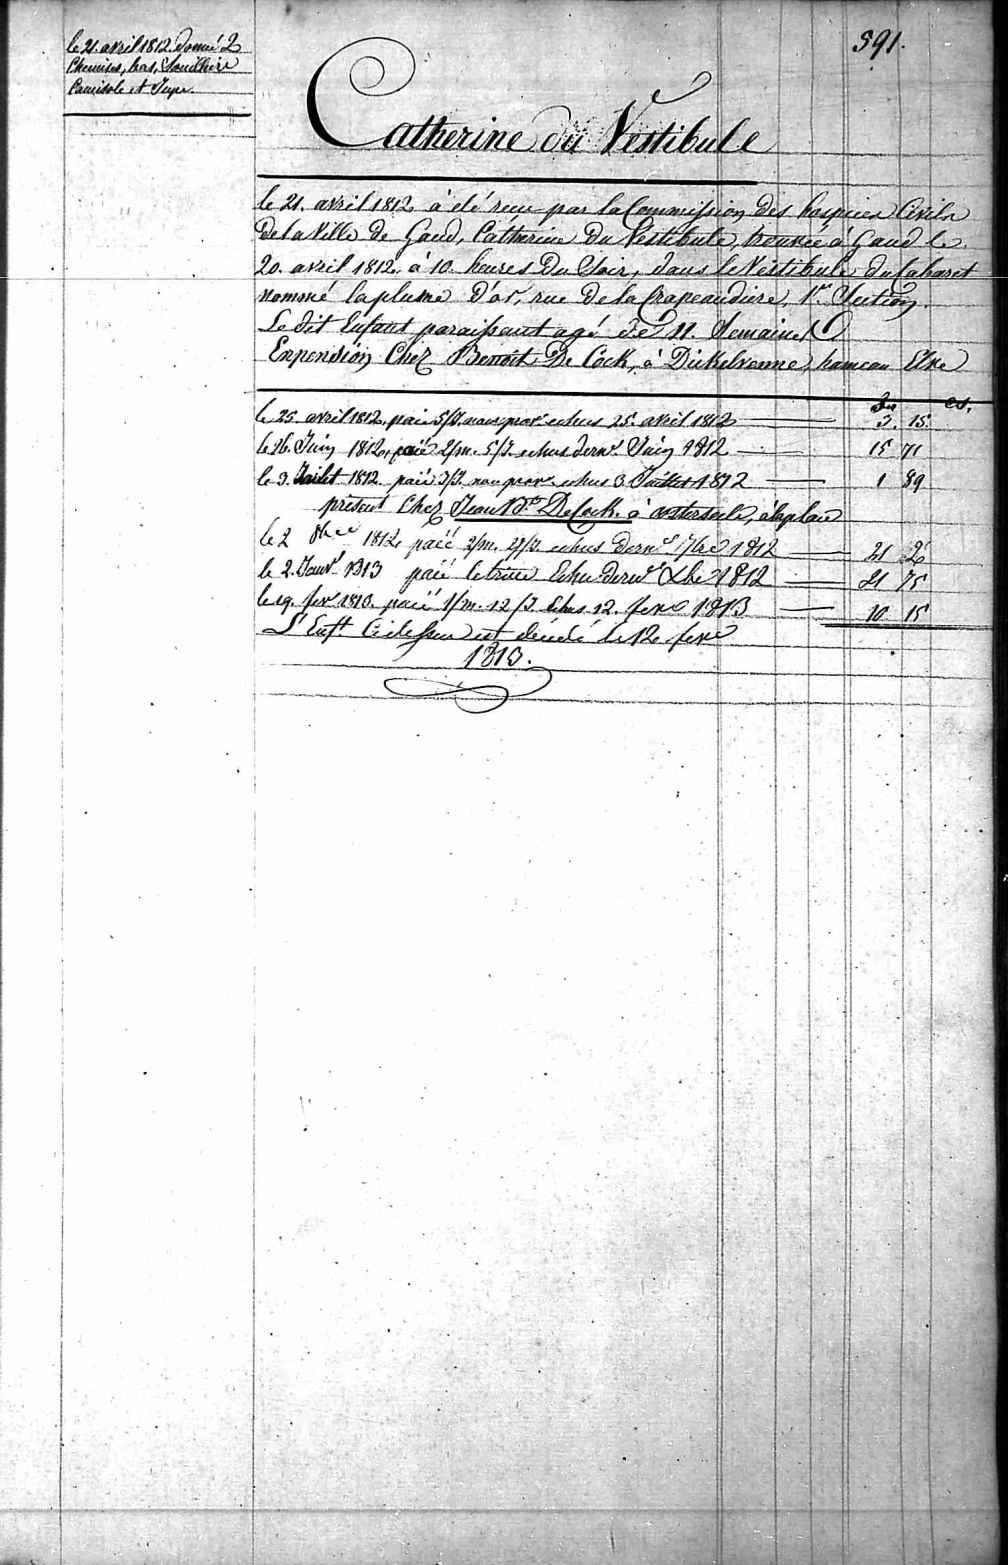 591.
le 21. avril 1812. donné 2
Chemises, bas,
Camisole et Jupe.
Catherine du Vestibule
le 21. avril 1812 à été reçu par la Commission des hospices Civils
de la Ville de Gand, Catherine du Vestibule, trouvée à Gand le
20. avril 1812. à 10. heures du Soir, dans le Vestibule du Cabaret
nommé la plume d'or, rue de la Crapeaudiere, 1.re Section.
Le dit Enfant paraissant agé de 11. Semaines
Enpension Chez Benoit De Cock, à Dickelvenne, hameau Elve
cs.
le 25. avril 1812, paié 5/J. nourr prov. echus 25. avril 1812 3. 15.
le 26. Juin 1812, paié 2/m. 5/J. echus dern.r Juin 1812 15 71
le 3. Juillet 1812. paié 3/J. nou prov. echus 3 Juillet 1812 1 89
présent Chez Jean B.te De Cock. à Oosterzeele, à laplace
le 2 8bre 1812, paié 2/m. 27/J. echus dern.r 7bre 1812 21 26
le 2. Janv.r 1813 paié letrim Echu dern.r Xbre 1812 21 75
le 19. fev.r 1813. paié 1/m. 12/J. Echus 12. fevr 1813 10 15
L'Enf.t Cidessus est décédé le 12 fevr
1813.